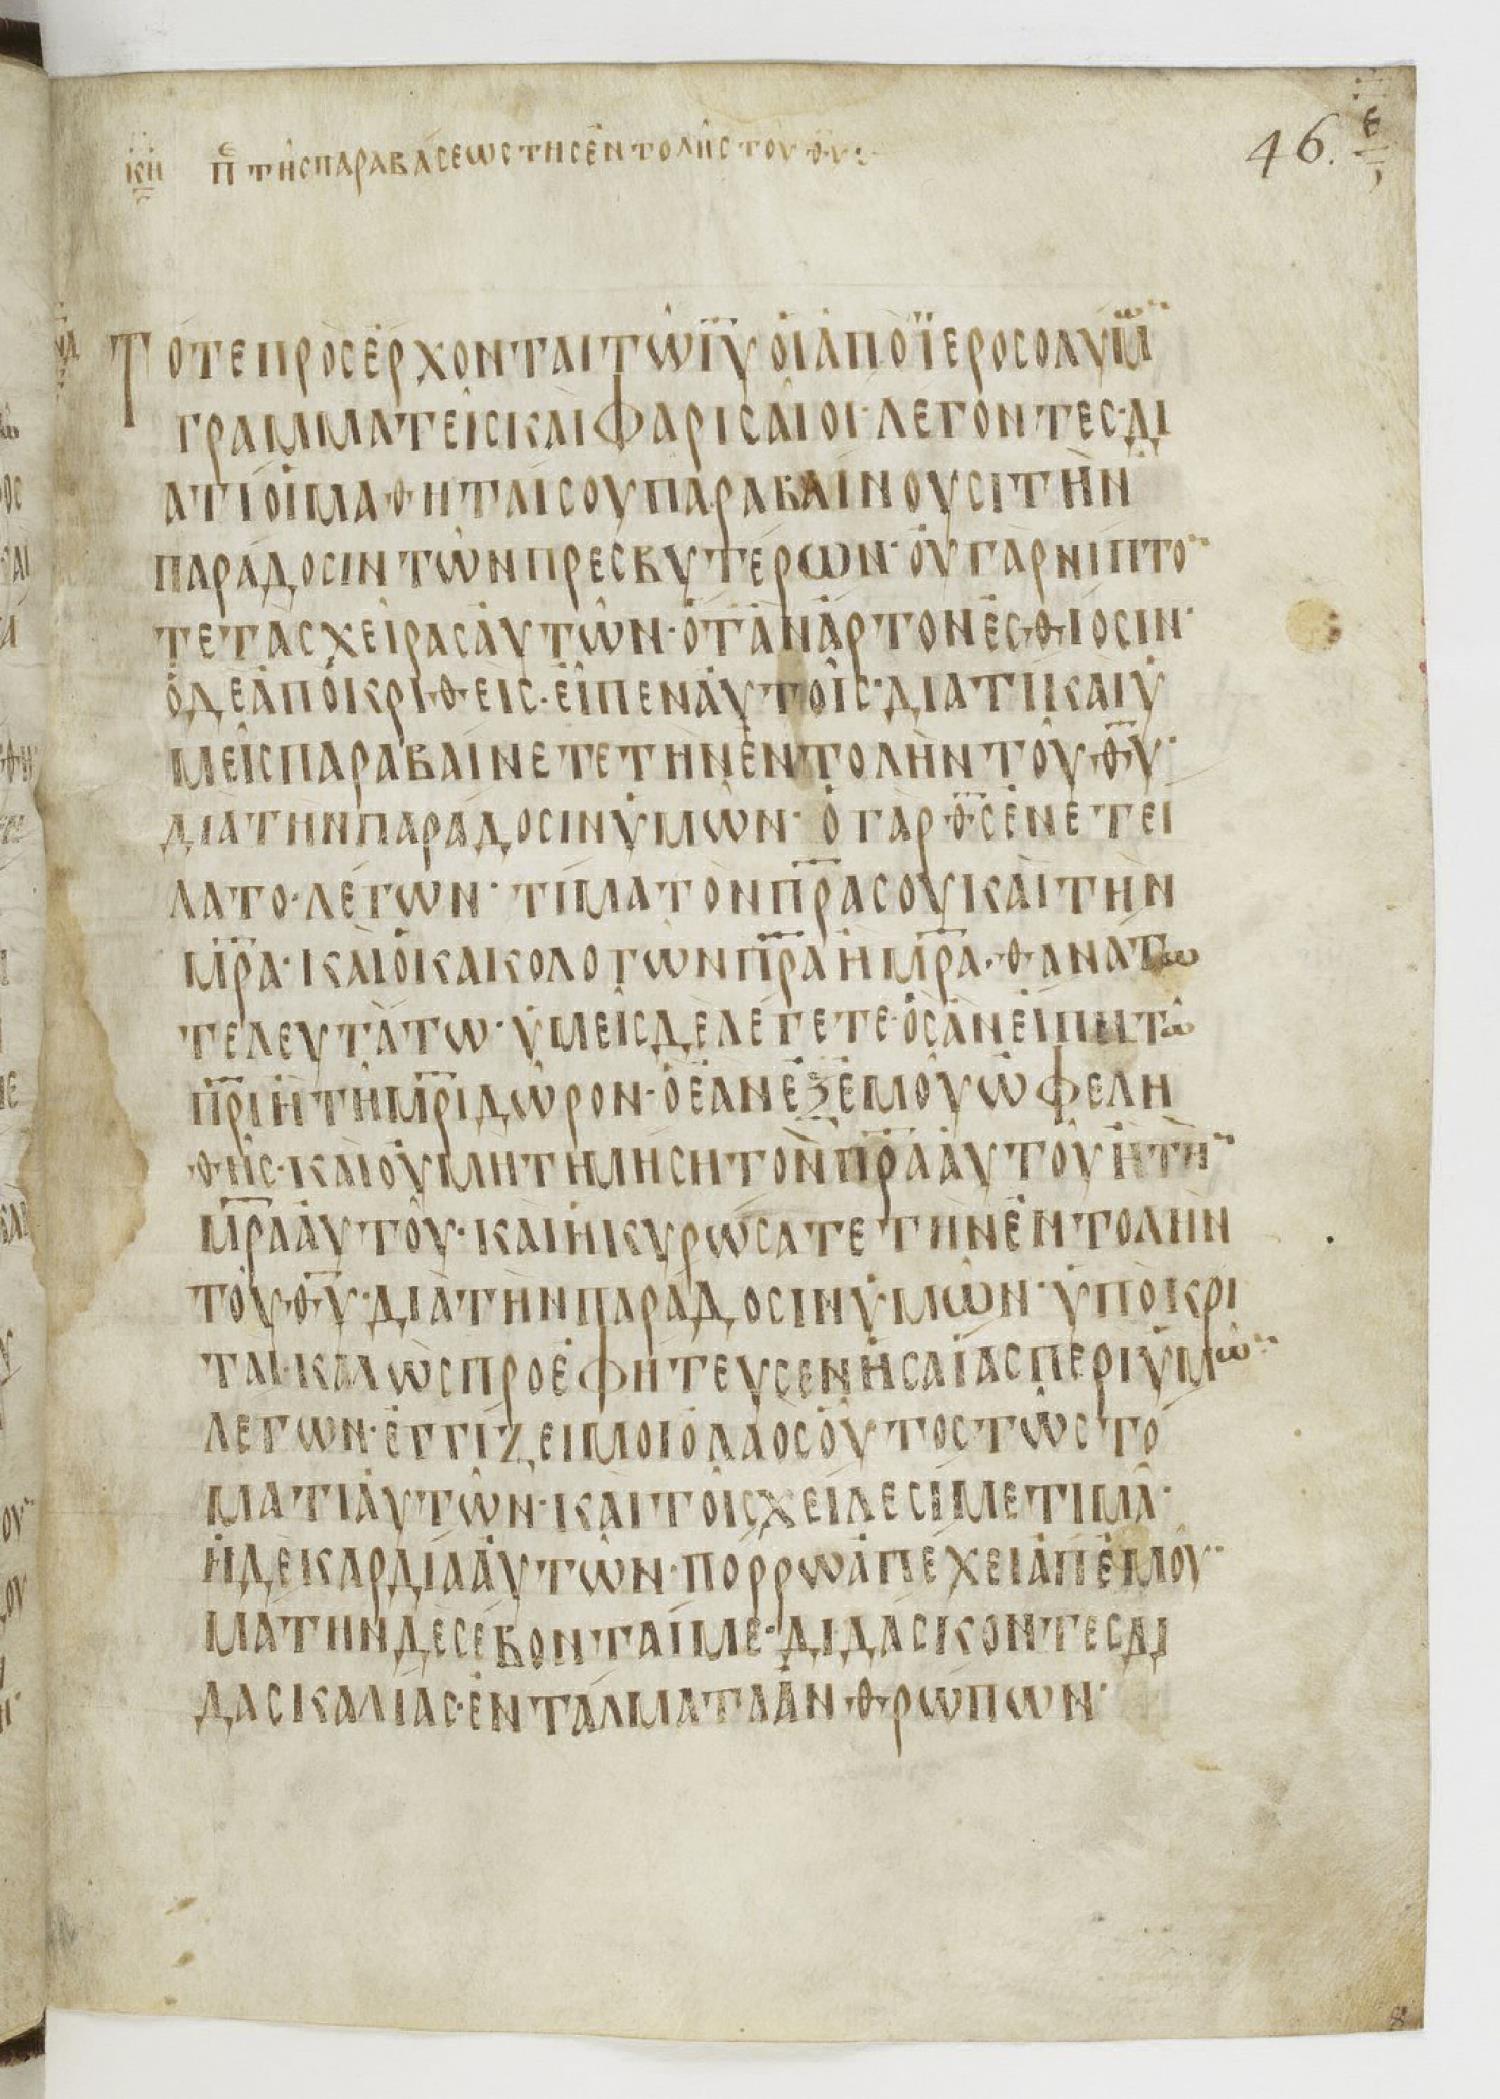 κη πε τῆς παραβάσεως τῆς ἐντολῆς τοῦ θυ
46. ϛ
Τότε προσέρχονται τῶ ιυ οἱ ἀπὸ ϊεροσολύμω
γραμματεῖς καὶ φαρισαῖοι· λέγοντες· δι
ατί οἱ μαθηταί σου παραβαίνουσι τὴν
παράδοσιν τῶν πρεσβυτέρων· οὐ γὰρ νίπτο
τε τὰς χεῖρας αὐτῶν· ὁτὰν ἄρτον ἐσθίοσιν·
ὁ δὲ ἀποκριθεὶς· εἶπεν αὐτοῖς· διατί καὶ ὑ
μεῖς παραβαίνετε τὴν ἐντολὴν τοῦ θυ·
διὰ τὴν παράδοσιν ὑμῶν· ὁ γὰρ θς ἐνετεί
λατο· λέγων· τίμα τὸν πρα σου καὶ τὴν
μρα· καὶ ὁ κακολογῶν πρα ἢ μρα· θανάτω
τελευτάτω· ὑμεῖς δὲ λέγετε· ὃς ἂν εἴπη τῶ
πρι ἢ τῆ μρι δῶρον· ὃ ἐὰν ἐξ ἐμοῦ ὠφελη
θῆς· καὶ οὐ μὴ τημήση τὸν πρα αὐτοῦ ἢ τὴ
μρα αὐτοῦ· καὶ ἠκυρώσατε τὴν ἐντολὴν
τοῦ θυ· διὰ τὴν παράδοσιν ὑμῶν· ὑποκρι
ταὶ· καλῶς προεφήτευσεν ἠσαΐας περὶ ὑμῶ
λέγων· ἐγγίζει μοι ὁ λαὸς οὗτος τῶ στό
ματι αὐτῶν· καὶ τοῖς χείλεσί με τιμᾶ·
ἡ δὲ καρδία αὐτῶν· πόρρω ἀπέχει ἀπ' ἐμοῦ·
μάτην δὲ σέβονταί με· διδάσκοντες δι
δασκαλίας· ἐντάλματα ἀνθρώπων·